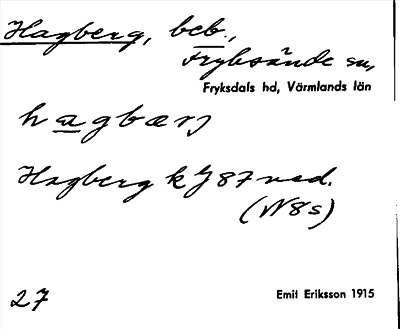 Hagberg, beb.,
Fryksände sn,
Fryksdals hd, Värmlands län
hagbærj
Hagberg k J 87 ned.
(N 8 s)
27
Emil Eriksson 1915